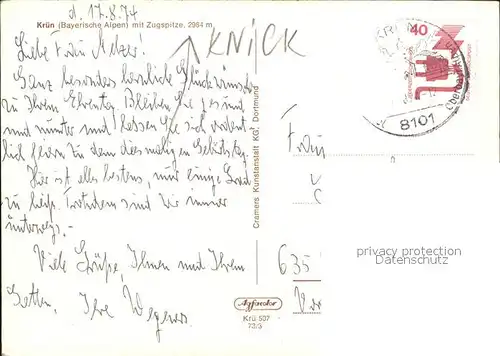 d. 17.8.74
Krün (Bayerische Alpen) mit Zugspitze, 2964 m
KNICK
Liebe Frau Melzer!
Ganz besonders herzlich Glückwünsche
zu Ihrem Ehrentag. Bleiben Sie gesund
und munter und lassen Sie sich ordent-
lich feiern zu dem diesmaligen Geburtstag.
Hier ist alles bestens, nur einige Grad
zu heiß. Trotzdem sind wir immer
unterwegs.-
Viele Grüße, Ihnen und Ihrem
Gatten. Ihre Wegener
Cramers Kunstanstalt KG, Dortmund
Agfacolor
Krü 507
73/3
40
8101
Frau
635
privacy protection